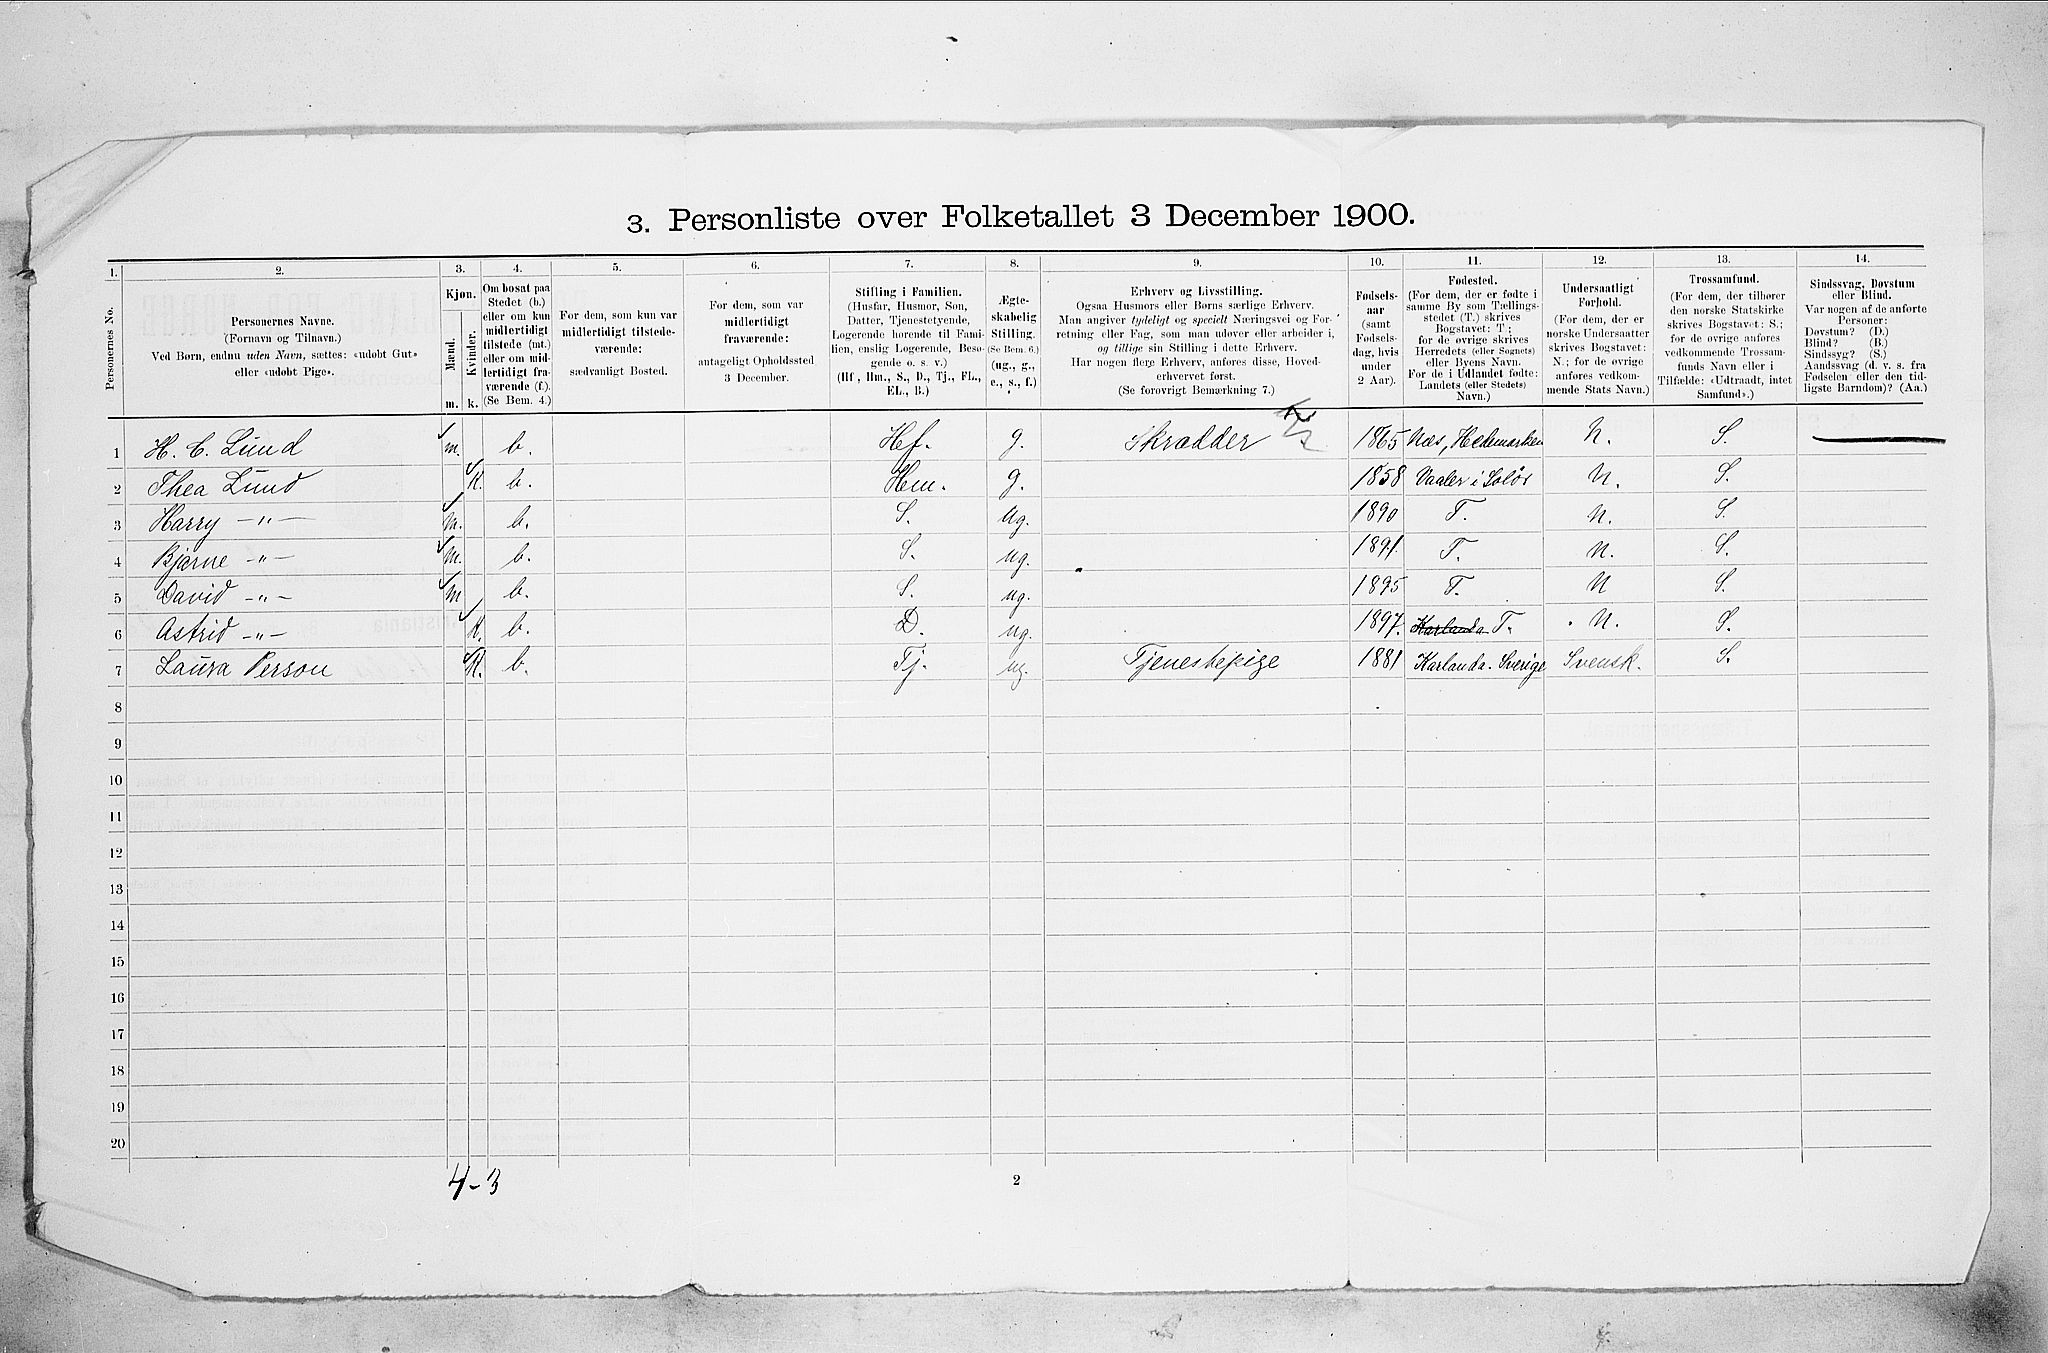 3. Personliste over Folketallet 3 December 1900.
1. 2. 3. 4. 5. 6. 7. 8. 9. 10. 11. 12. 13. 14.
Personernes No.
Personernes Navne.
(Fornavn og Tilnavn.)
Ved Børn, endnu uden Navn, sættes: «udøbt Gut»
eller «udøbt Pige».
Kjøn.
Mænd.
Kvinder.
m. k.
Om bosat paa
Stedet (b.)
eller om kun
midlertidigt
tilstede (mt.)
eller om mid-
lertidigt fra-
værende (f.).
(Se Bem. 4.)
For dem, som kun var
midlertidigt tilstede-
værende:
sædvanligt Bosted.
For dem, som var
midlertidigt
fraværende:
antageligt Opholdssted
3 December.
Stilling i Familien.
(Husfar, Husmor, Søn,
Datter, Tjenestetyende,
Logerende hørende til Fami-
lien, enslig Logerende, Besø-
gende o. s. v.)
(Hf., Hm., S., D., Tj., FL.,
EL., B.)
Ægte-
skabelig
Stilling.
(Se Bem. 6.)
(ug., g.,
e., s., f.)
Erhverv og Livsstilling.
Ogsaa Husmors eller Børns særlige Erhverv.
Man angiver tydeligt og specielt Næringsvei og For-
retning eller Fag, som man udøver eller arbeider i,
og tillige sin Stilling i dette Erhverv.
Har nogen flere Erhverv, anføres disse, Hoved-
erhvervet først.
(Se forøvrigt Bemærkning 7.)
Fødsels-
aar
(samt
Fødsels-
dag, hvis
under
2 Aar).
Fødested.
(For dem, der er fødte i
samme By som Tællings-
stedet (T.) skrives
Bogstavet: T;
for de øvrige skrives
Herredets (eller Sognets)
eller Byens Navn.
For de i Udlandet fødte:
Landets (eller Stedets)
Navn.)
Undersaatligt
Forhold.
(For dem, der er
norske Undersaatter
skrives Bogstavet:
N.; for de øvrige
anføres vedkom-
mende Stats Navn.)
Trossamfund.
(For dem, der tilhører
den norske Statskirke
skrives Bogstavet: S.;
for de øvrige anføres
vedkommende Trossam-
funds Navn eller i
Tilfælde: «Udtraadt, intet
Samfund».)
Sindssvag, Døvstum
eller Blind.
Var nogen af de anførte
Personer:
Døvstum? (D.)
Blind? (B.)
Sindssyg? (S.)
Aandssvag (d. v. s. fra
Fødselen eller den tid-
ligste Barndom)? (Aa.)
1 H. C. Lund m. b. Hf. g. Skrædder 1865 Næs, Hedemarken N. S.
2 Thea Lund K. b. Hm. g. 1858 Vaaler i Solør N. S.
3 Harry -"- m. b. S. ug. 1890 T. N. S.
4 Bjarne -"- m. b. S. ug. 1891. T. N. S.
5 David -"- m b. S. ug. 1895 T. N S.
6 Astrid -"- K. b. D. ug. 1897. Karlanda T. N. S.
7 Laura Person K. b. Tj. ug. Tjenestepige 1881 Karlanda. Sverige Svensk. S.
8
9
10
11
12
13
14
15
16
17
18
19
20
4-3
2